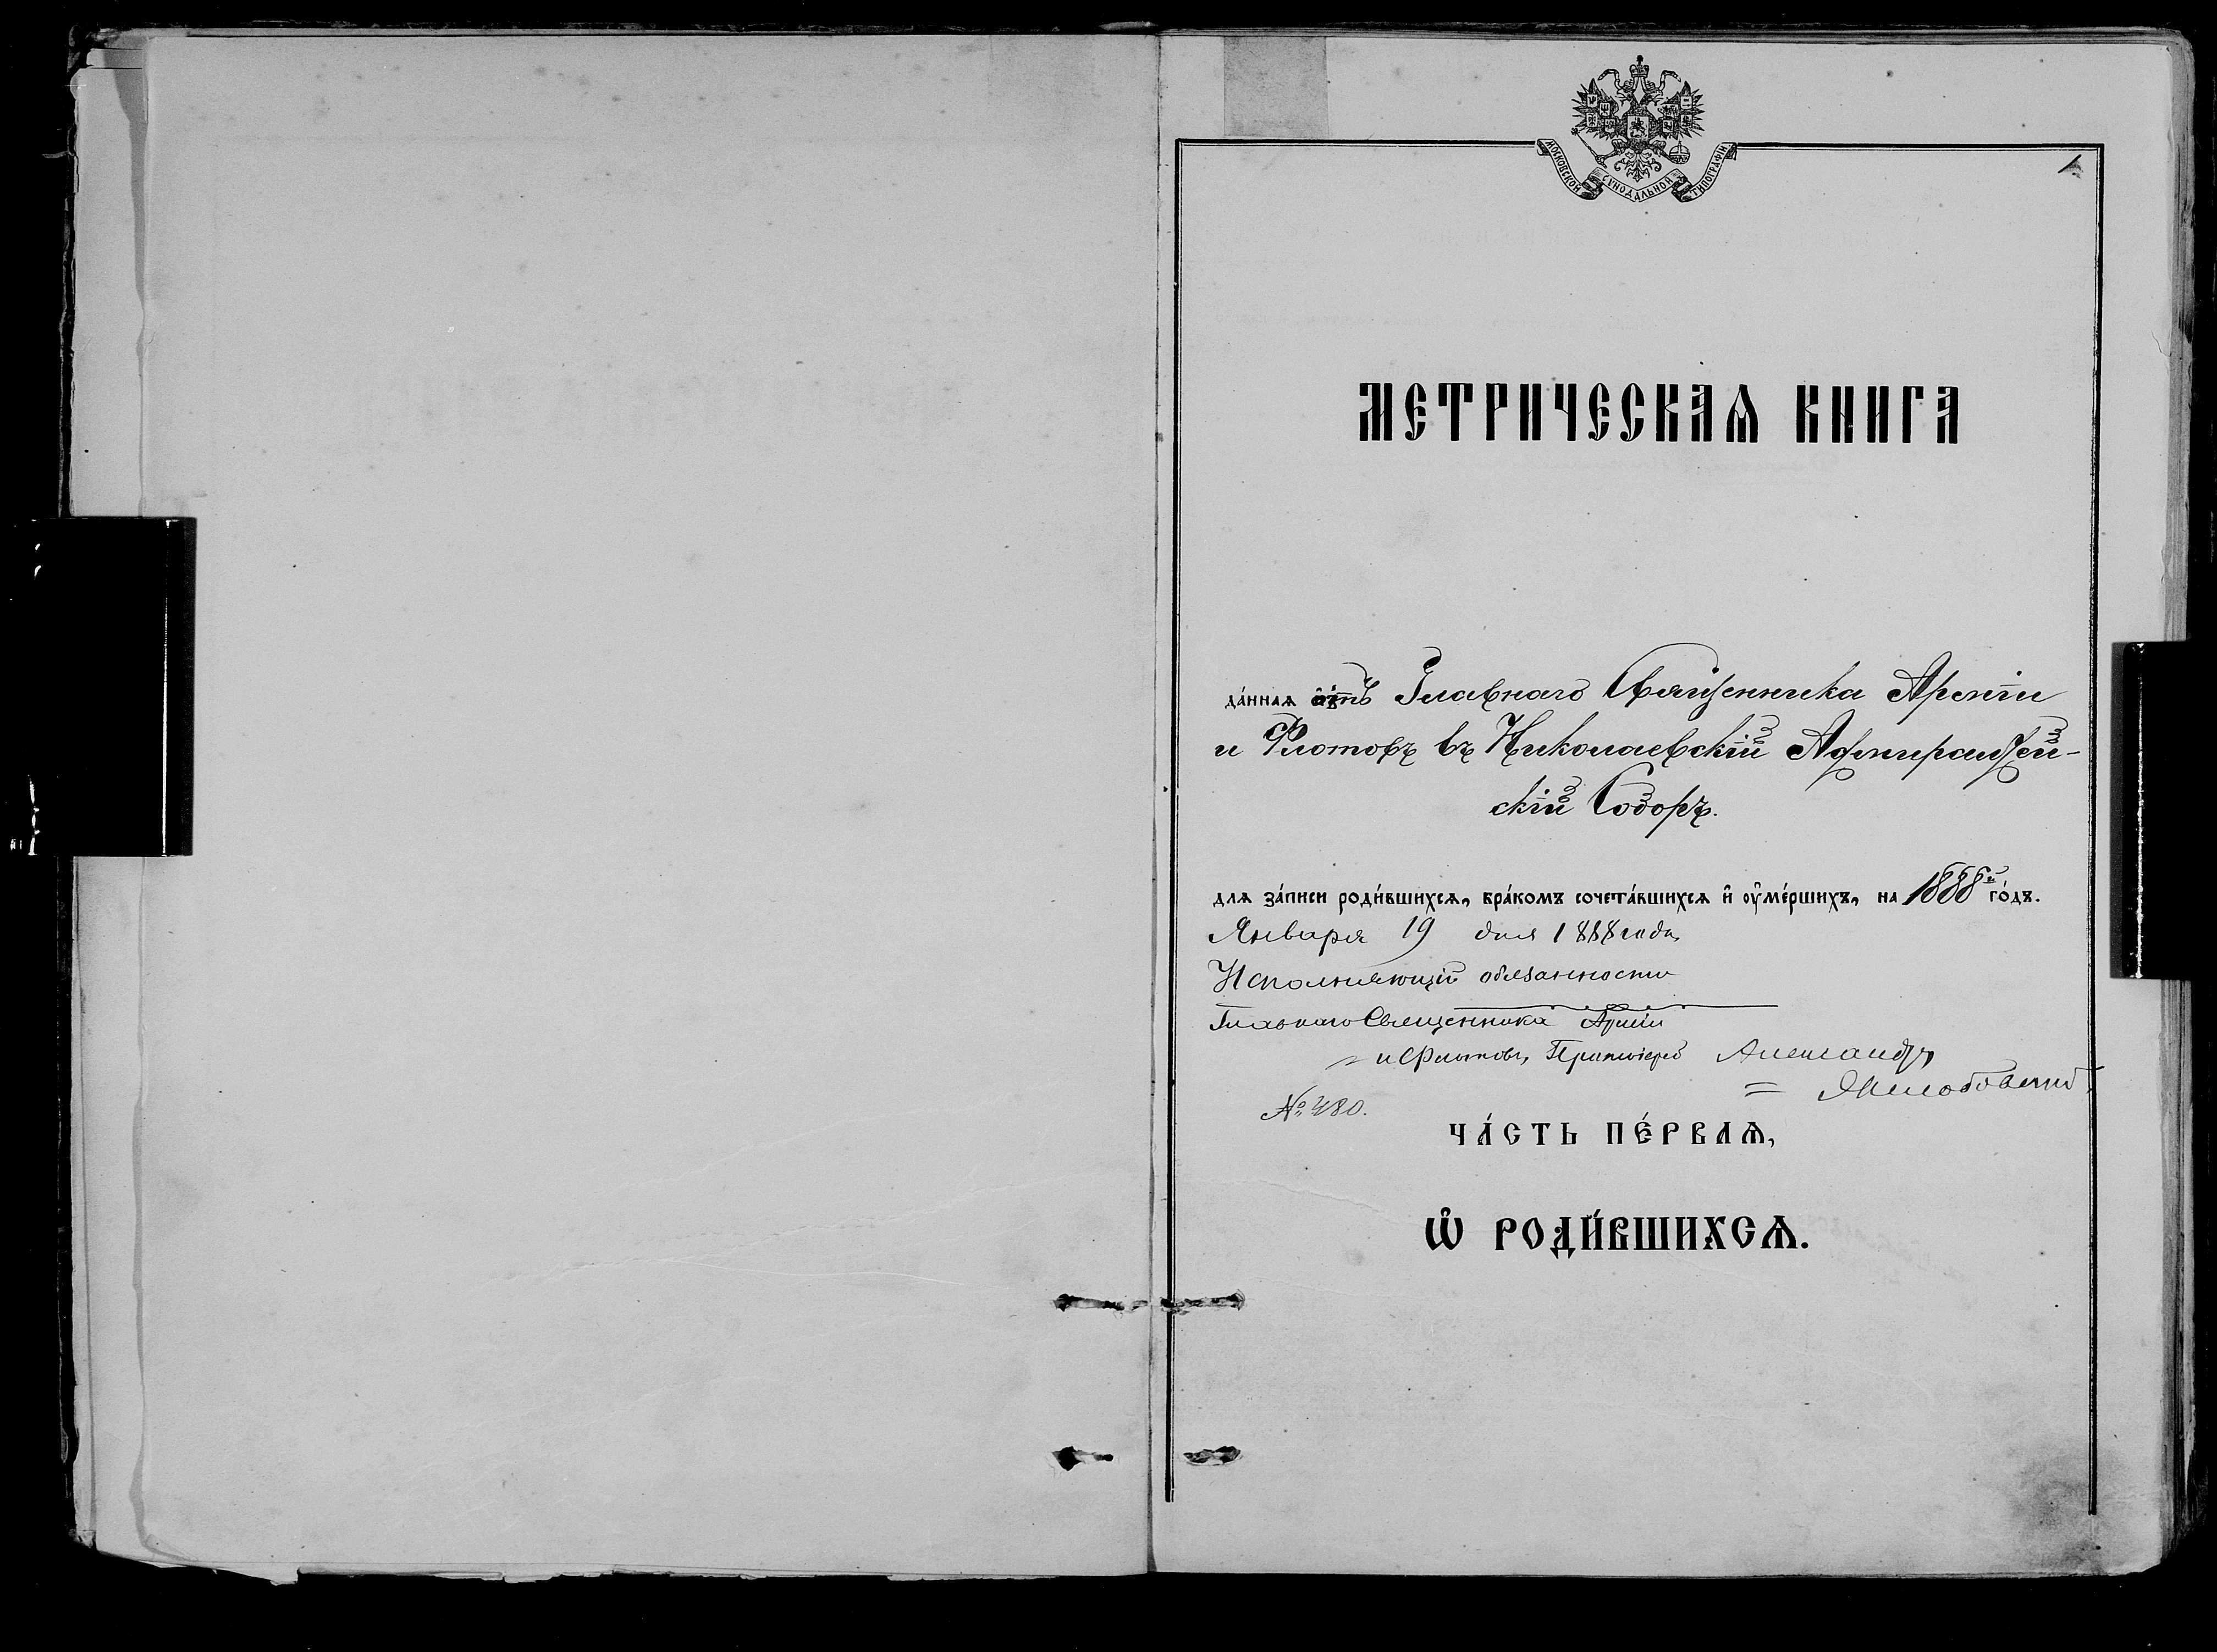 МОСКОВСКОЙ СѴНОДАЛЬНОЙ ТИПОГРАФІИ
1
МЕТРИЧЕСКАѦ КНИГА
да́ннаѧ отъ Главнаго Священника Арміи
и Флотовъ въ Николаевскій Адмиралтей-
скій Соборъ.
для за́писи роди́вшихсѧ, бра́комъ сочета́вшихсѧ и҆ ᲂу҆ме́ршихъ, на 1888й го́дъ.
Января 19 дня 1888 года,
Исполняющій обязанности
Главнаго Священника Арміи
и Флотовъ, Протоіерей Александръ
Желобовскій
№ 480.
ЧА́СТЬ ПЕ́РВАѦ,
Ѡ҆ РОДИ́ВШИХСѦ.